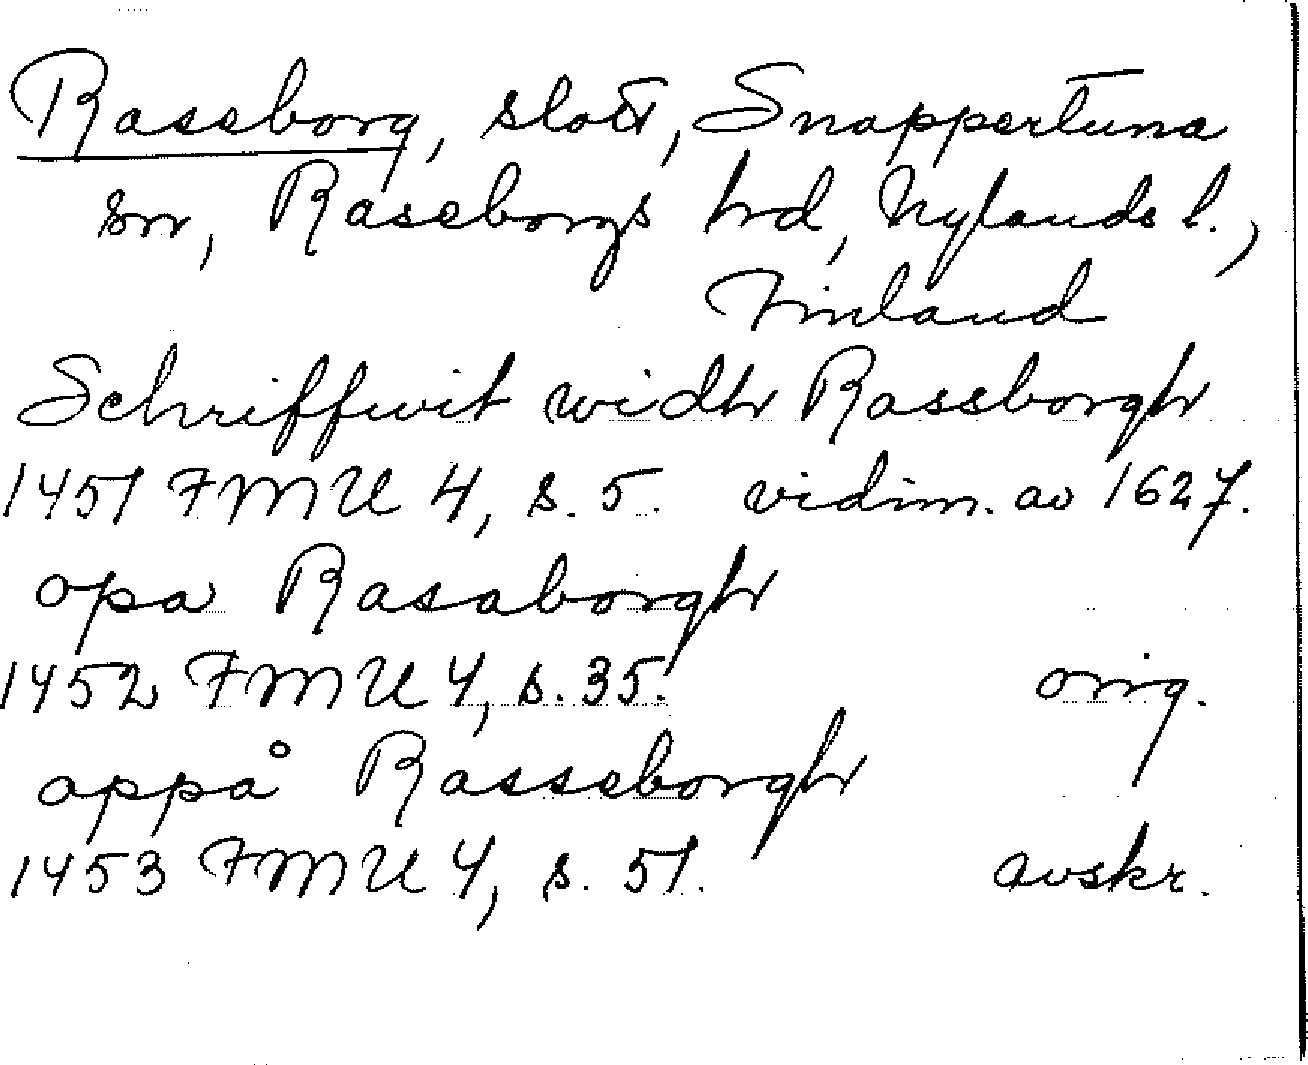 Rassborg, slott, Snappertuna
sn, Raseborgs hd, Nylands l.,
Finland
Schriffwit widh Rassborgh
1451 FMU 4, s. 5. vidim. av 1627.
opa Rasaborgh
1452 FMU 4, s. 35. orig.
oppå Rasseborgh
1453 FMU 4, s. 51. avskr.